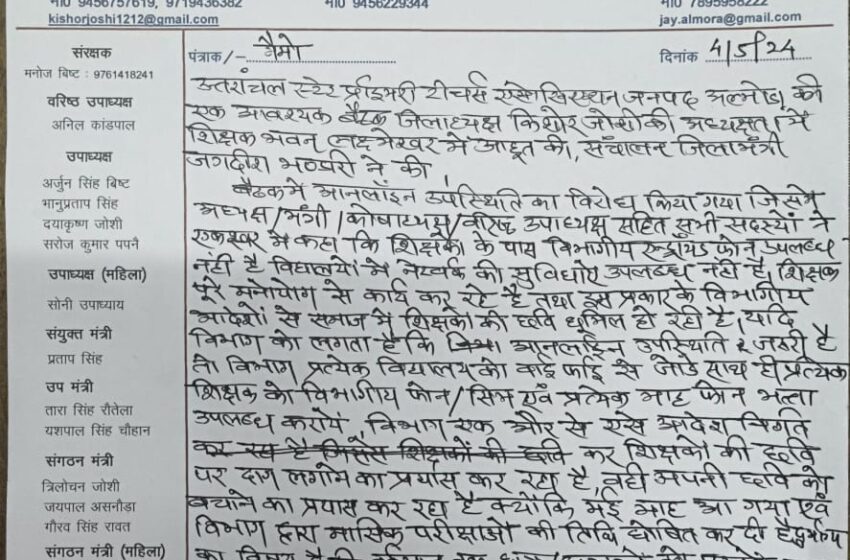 मो0 9456757619, 9719436382
मो0 9456229344
मो0 7895958222
kishorjoshi1212@gmail.com
jay.almora@gmail.com
संरक्षक
मनोज बिष्ट : 9761418241
वरिष्ठ उपाध्यक्ष
अनिल कांडपाल
उपाध्यक्ष
अर्जुन सिंह बिष्ट
भानुप्रताप सिंह
दयाकृष्ण जोशी
सरोज कुमार पपनै
उपाध्यक्ष (महिला)
सोनी उपाध्याय
संयुक्त मंत्री
प्रताप सिंह
उप मंत्री
तारा सिंह रौतेला
यशपाल सिंह चौहान
संगठन मंत्री
त्रिलोचन जोशी
जयपाल असनौड़ा
गौरव सिंह रावत
संगठन मंत्री (महिला)
पत्रांक /- मैमो
दिनांक 4/5/24
उत्तरांचल स्टेट प्राईमरी टीचर्स एसोसिएशन जनपद अल्मोड़ा की
एक आवश्यक बैठक जिलाध्यक्ष किशोर जोशी की अध्यक्षता में
शिक्षक भवन लक्ष्मेश्वर में आहूत की, संचालन जिलामंत्री
जगदीश भण्डारी ने की।
बैठक में आनलाइन उपस्थिति का विरोध किया गया जिसमें
अध्यक्ष/मंत्री/कोषाध्यक्ष/वरिष्ठ उपाध्यक्ष सहित सभी सदस्यों ने
एकस्वर में कहा कि शिक्षकों के पास विभागीय एन्ड्रायड फोन उपलब्ध
नहीं है विद्यालयों में नेटवर्क की सुविधाऐ उपलब्ध नहीं है, शिक्षक
पूरे मनोयोग से कार्य कर रहे है तथा इस प्रकार के विभागीय
आदेशों से समाज में शिक्षकों की छवि धूमिल हो रही है, यदि
विभाग को लगता है कि आनलाइन उपस्थिति जरुरी है
तो विभाग प्रत्येक विद्यालय को वाई फाई से जोडे साथ ही प्रत्येक
शिक्षक को विभागीय फोन/सिम एवं प्रत्येक माह फोन भत्ता
उपलब्ध करायें, विभाग एक और से एसे आदेश निर्गत
कर रहा है जिससे शिक्षकों की छवि कर शिक्षकों की छवि
पर दाग लगाने का प्रयास कर रहा है, वही अपनी छवि को
बचाने का प्रयास कर रहा है क्योंकि मई माह आ गया एवं
विभाग द्वारा मासिक परीक्षाओं की तिथि घोषित कर दी है दुर्भाग्य
का विषय है की